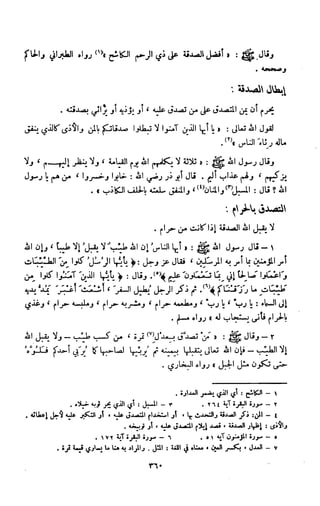 وقال ﷺ : « أفضل الصدقة على ذي الرحم الكاشح (١) » رواه الطبراني والحاكم
وصححه .
إبطال الصدقة :
يحرم أن يمن المتصدق على من تصدق عليه ، أو يؤذيه أو يرائي بصدقته .
لقول الله تعالى : « يا أيها الذين آمنوا لا تبطلوا صدقاتكم بالمن والأذى كالذي ينفق
ماله رئاء الناس » (٢) .
وقال رسول الله ﷺ : « ثلاثة لا يكلمهم الله يوم القيامة ، ولا ينظر إليهم ، ولا
يزكيهم ، ولهم عذاب أليم . قال أبو ذر رضي الله : خابوا وخسروا ، من هم يا رسول
الله ؟ قال : المسبل (٣) والمنان (٤) ، والمنفق سلعته بالحلف الكاذب » .
التصدق بالحرام :
لا يقبل الله الصدقة إذا كانت من حرام .
١ — قال رسول الله ﷺ : « أيها الناس إن الله طيب لا يقبل إلا طيباً ، وإن الله
أمر المؤمنين بما أمر به المرسلين ، فقال عز وجل : ﴿ يا أيها الرسل كلوا من الطيبات
واعملوا صالحاً إني بما تعملون عليم ﴾ (٥) . وقال : ﴿ يا أيها الذين آمنوا كلوا من
طيبات ما رزقناكم ﴾ (٦) . ثم ذكر الرجل يطيل السفر ، أشعث أغبر يمد يديه
إلى السماء : يا رب ، يا رب ، ومطعمه حرام ، ومشربه حرام ، وملبسه حرام ، وغذي
بالحرام فأنى يستجاب له » رواه مسلم .
٢ — وقال ﷺ : « من تصدق بعدل (٧) تمرة ، من كسب طيب — ولا يقبل الله
إلا الطيب — فإن الله تعالى يتقبلها بيمينه ثم يربيها لصاحبها كما يربي أحدكم فلوه
حتى تكون مثل الجبل » رواه البخاري .
١ — الكاشح : أي الذي يضمر العداوة .
٢ — سورة البقرة آية ٢٦٤ . ٣ — المسبل : أي الذي يجر ثوبه خيلاء .
٤ — المن : ذكر الصدقة والتحدث بها ، أو استخدام المتصدق عليه ، أو التكبر عليه لأجل إعطائه .
والأذى : إظهار الصدقة ، قصد إيلام المتصدق عليه ، أو توبيخه .
٥ — سورة المؤمنون آية ٥١ . ٦ — سورة البقرة آية ١٧٢ .
٧ — العدل ، بكسر العين ، معناه في اللغة : المثل . والمراد به هنا ما يساوي قيمة تمرة .
٣٦٠